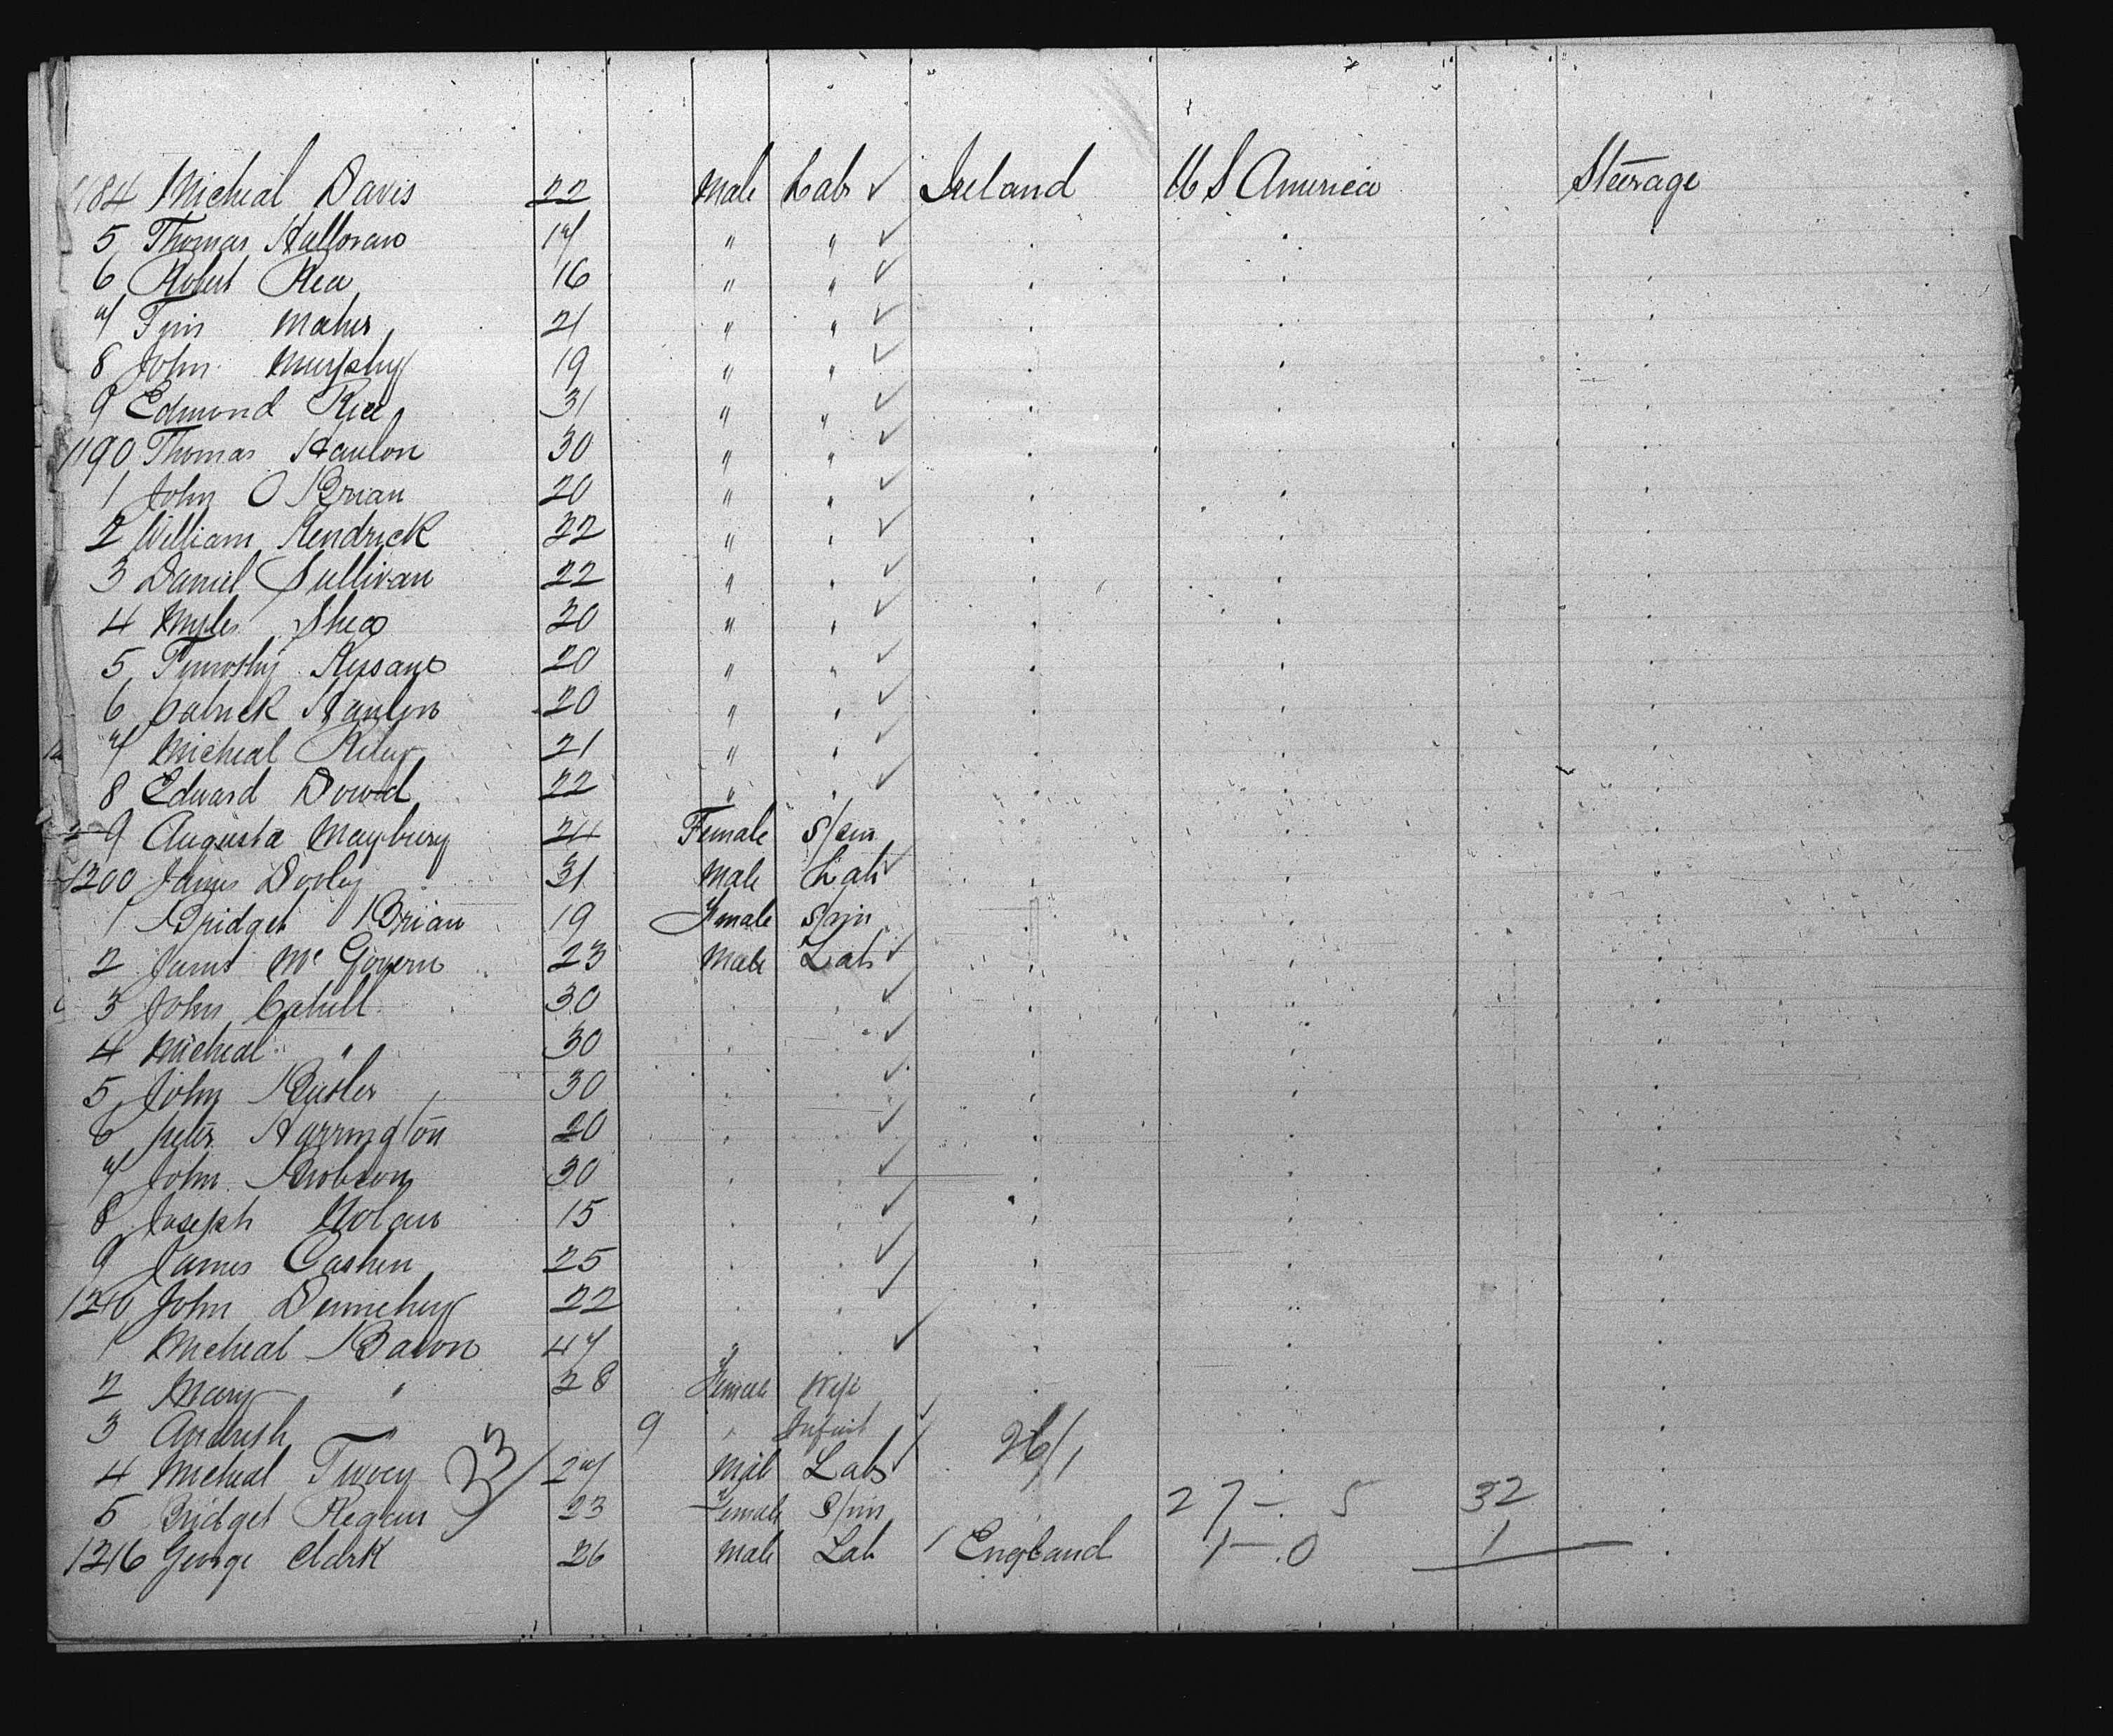 1184 Micheal Davis 22 Male Lab ✓ Ireland U S America Steerage
5 Thomas Halloran 17 " " ✓
6 Robert Rea 16 " " ✓
7 Tim Maher 21 " " ✓
8 John Murphy 19 " " ✓
9 Edmond Rice 31 " " ✓
1190 Thomas Hanlon 30 " " ✓
1 John O Brian 20 " " ✓
2 William Kendrick 32 " " ✓
3 Daniel Sullivan 22 " " ✓
4 Myles Shea 20 " " ✓
5 Tymothy 20 " " ✓
6 Patrick Hanlon 20 " " ✓
7 Micheal Riley 21 " " ✓
8 Edward Dowd 22 " " ✓
9 Augusta Maybury 24 Female Spin
1200 James Dooley 31 Male Lab ✓
1 Bridget Brian 19 Female Spin
2 James Mc Govern 23 Male Lab ✓
3 John Cahill 30 ✓
4 Micheal " 30 ✓
5 John Butler 30 ✓
6 Peter Harrington 20 ✓
7 John 30 ✓
8 Joseph Nolan 15 ✓
9 James Cashen 25 ✓
1210 John Dennehy 22 ✓
1 Micheal Bacon 47 " ✓
2 Mary " 28 Female Wife
3 " 9 " Infant ✓
4 Micheal 33 27 Male Lab ✓ 26/1
5 Bridget Regan 23 Female Spin 27 - 5 32
1216 George Clark 26 Male Lab / England 1 - 0 1